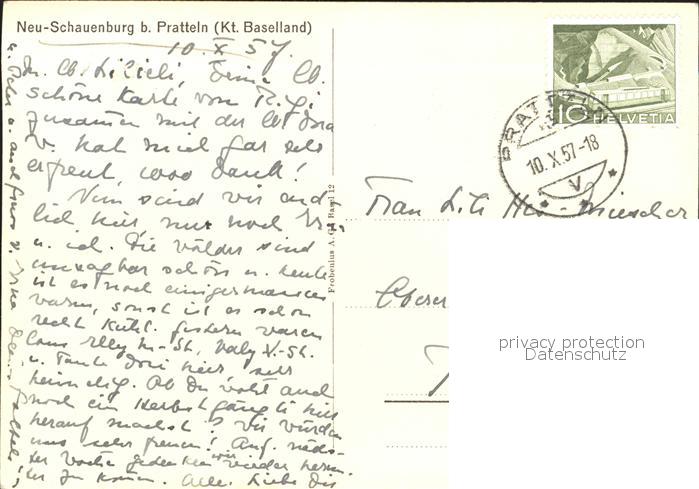 Neu-Schauenburg b. Pratteln (Kt. Baselland)
10. X 57.
Lb. Lilieli, Deine lb.
schöne Karte von Rigi
zusammen mit der lb. Dora
V. hat mich gar sehr
erfreut, 1000 Dank!
Nun sind wir end
lich hier, nur noch
u. ich. Die Wälder sind
unsagbar schön u. heute
ist es noch einigermassen
warm, sonst ist es schon
recht kühl. Gestern waren
Elly M-St, Valy V.-St.
u. Tante Dori hier, sehr
heimelig. Ob Du wohl auch
noch ein Herbstgängli hier
herauf machst? Wir würden
uns sehr freuen! Anf. näch-
ster Woche gedenken wir wieder herun-
ter zu kommen. Alles Liebe Dir
Frobenius A.G. Basel 12
HELVETIA
10
PRATTELN
10. X. 57-18
V
Frau Lili - Miescher
privacy protection
Datenschutz